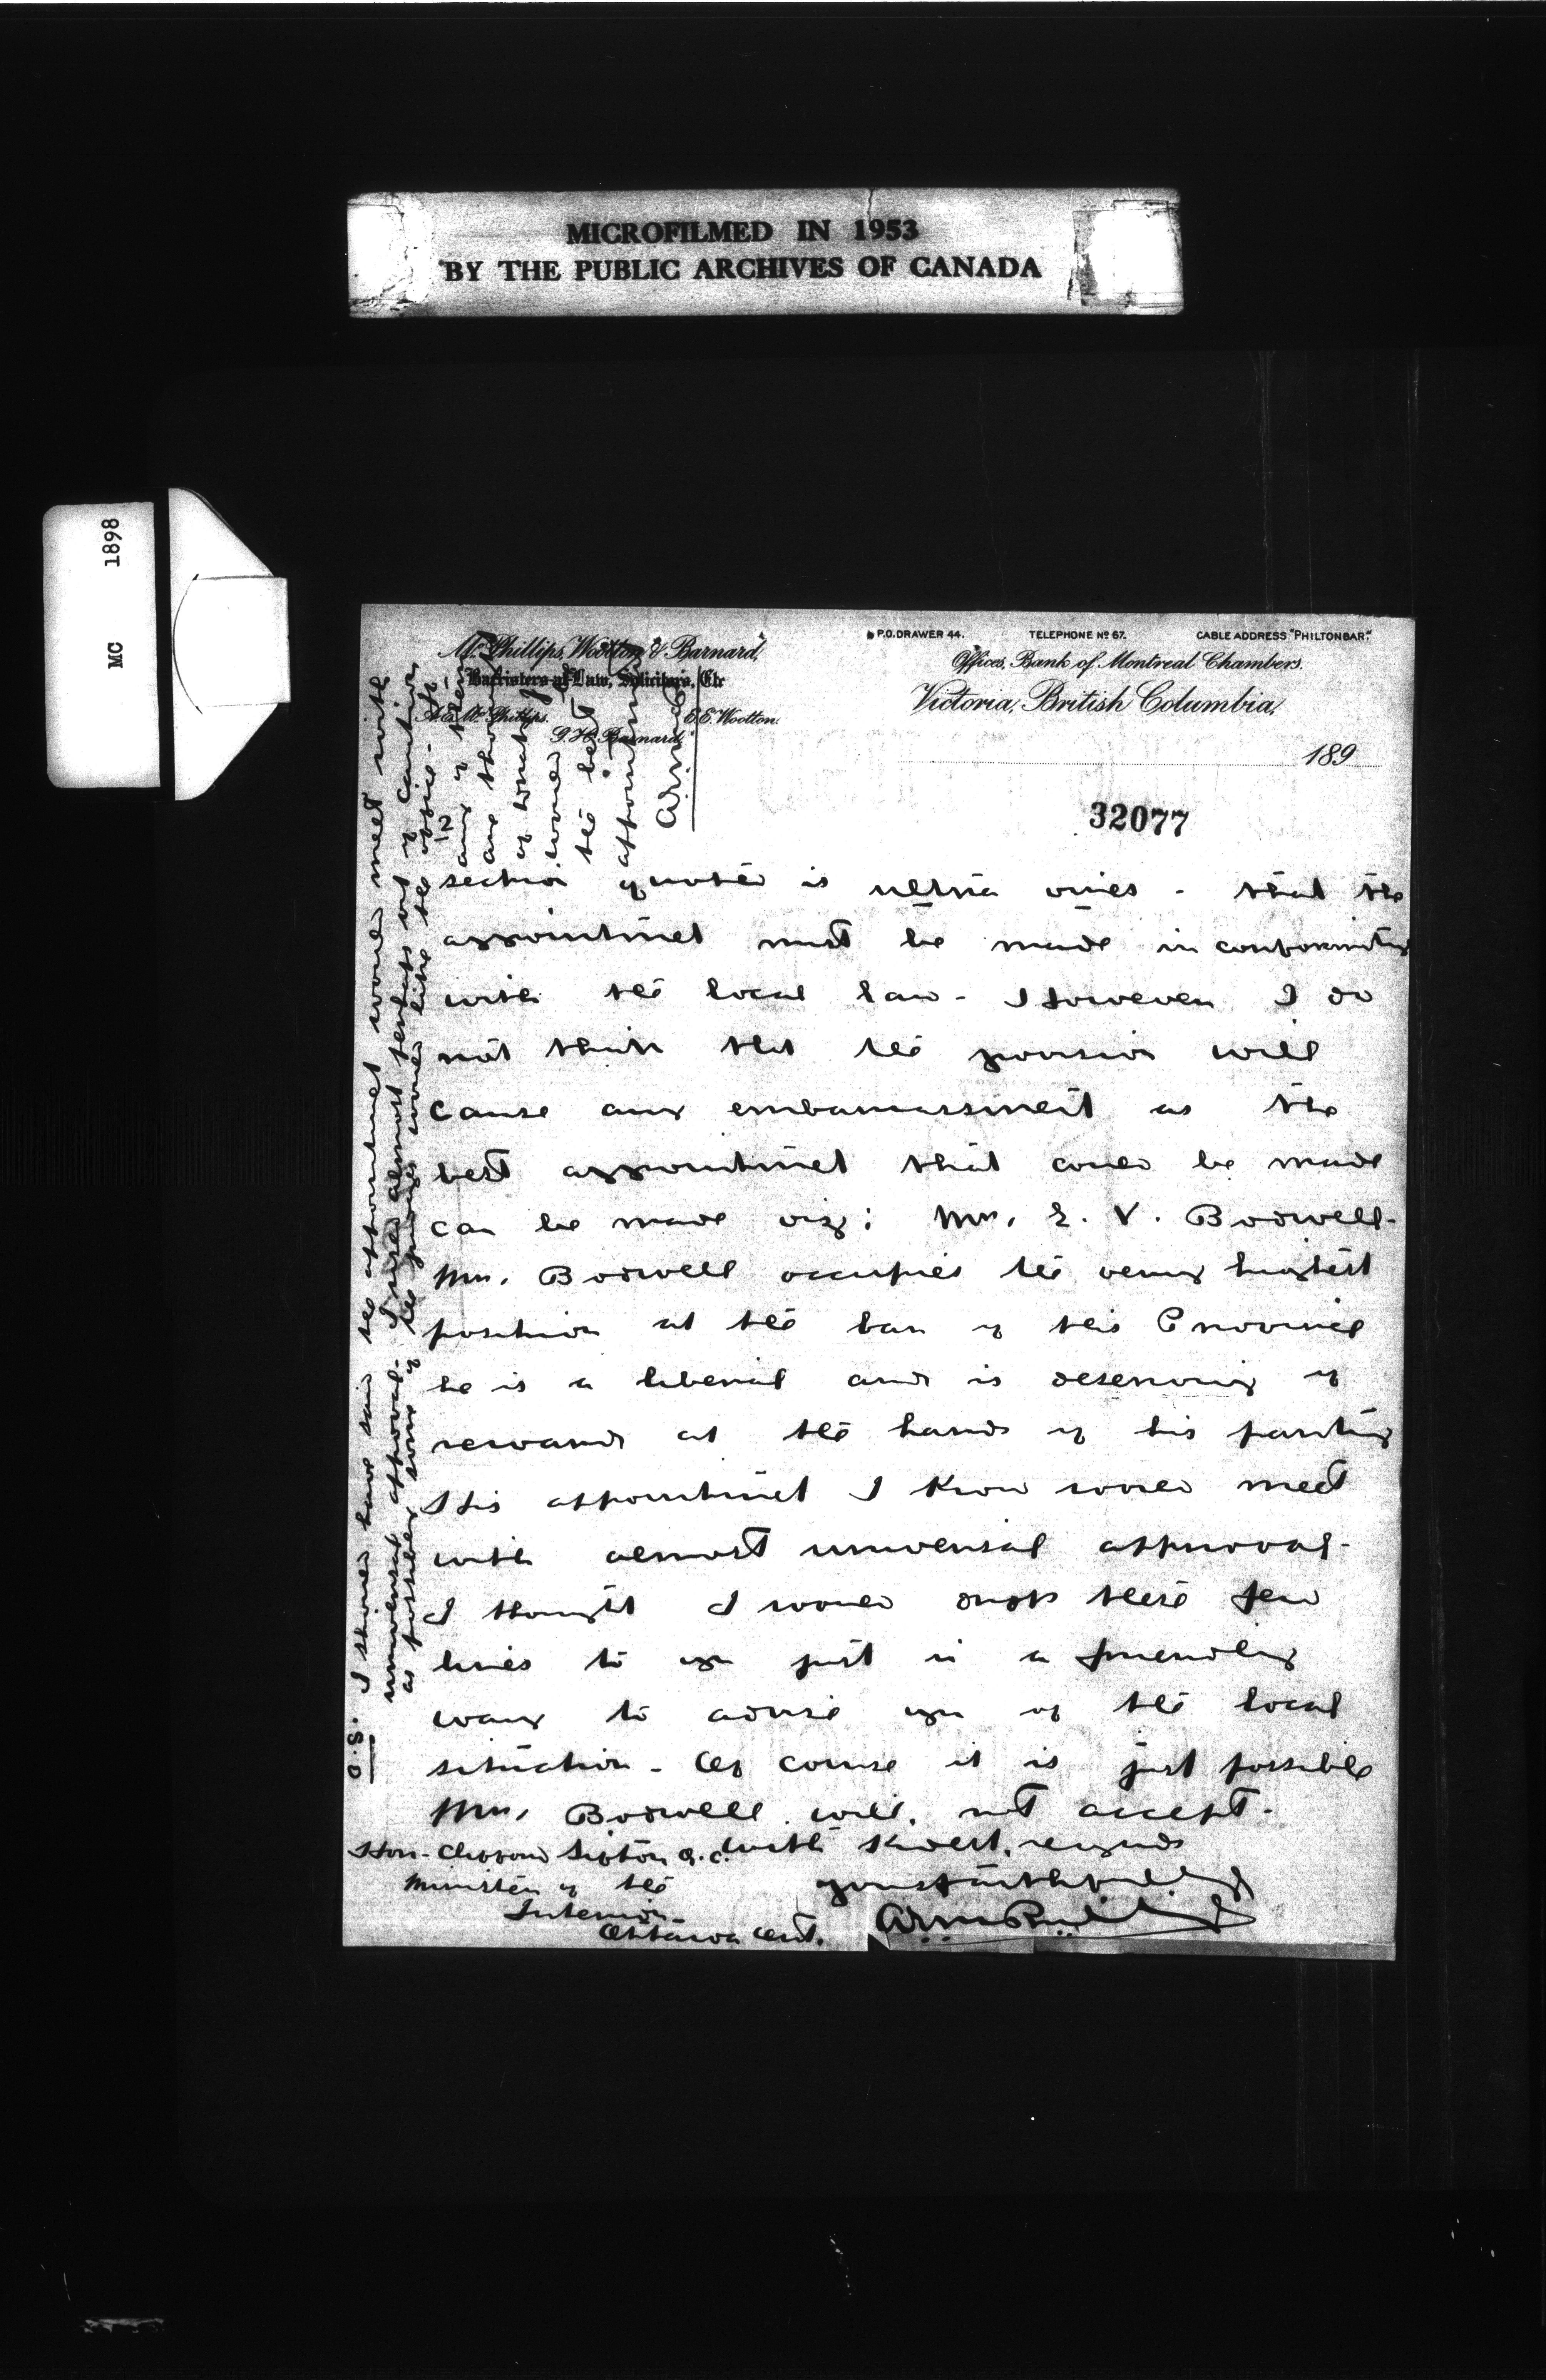 MICROFILMED IN 1953
BY THE PUBLIC ARCHIVES OF CANADA
MC 1898
McPhillips, Wootton & Barnard,
Barristers-at-Law, Solicitors, Etc
A.E. McPhillips.
E.E. Wootton.
G.H. Barnard.
P.O. DRAWER 44. TELEPHONE No 67. CABLE ADDRESS "PHILTONBAR."
Offices, Bank of Montreal Chambers.
Victoria, British Columbia,
189
32077
2
section quoted is ultra vires - that the
appointment must be made in conformity
with the local law - However I do
not think that the provision will
cause any embarrassment as the
best appointment that could be made
can be made viz: Mr. E. V. Bodwell -
Mr. Bodwell occupies the very highest
position at the bar of this Province
he is a liberal and is deserving of
reward at the hands of his party
His appointment I know would meet
with almost universal approval -
I thought I would drop these few
lines to you just in a friendly
way to advise you of the local
situation - Of course it is just possible
Mr. Bodwell will not accept -
With kindest regards
yours faithfully
Hon - Clifford Sifton Q.C.
Minister of the
Interior
Ottawa Ont.
P.S. I should have said the appointment would meet with
universal approval - I used almost perhaps out of caution
as possibly some of the judges would like the office -
any of them
are
of
would
the best
appointment